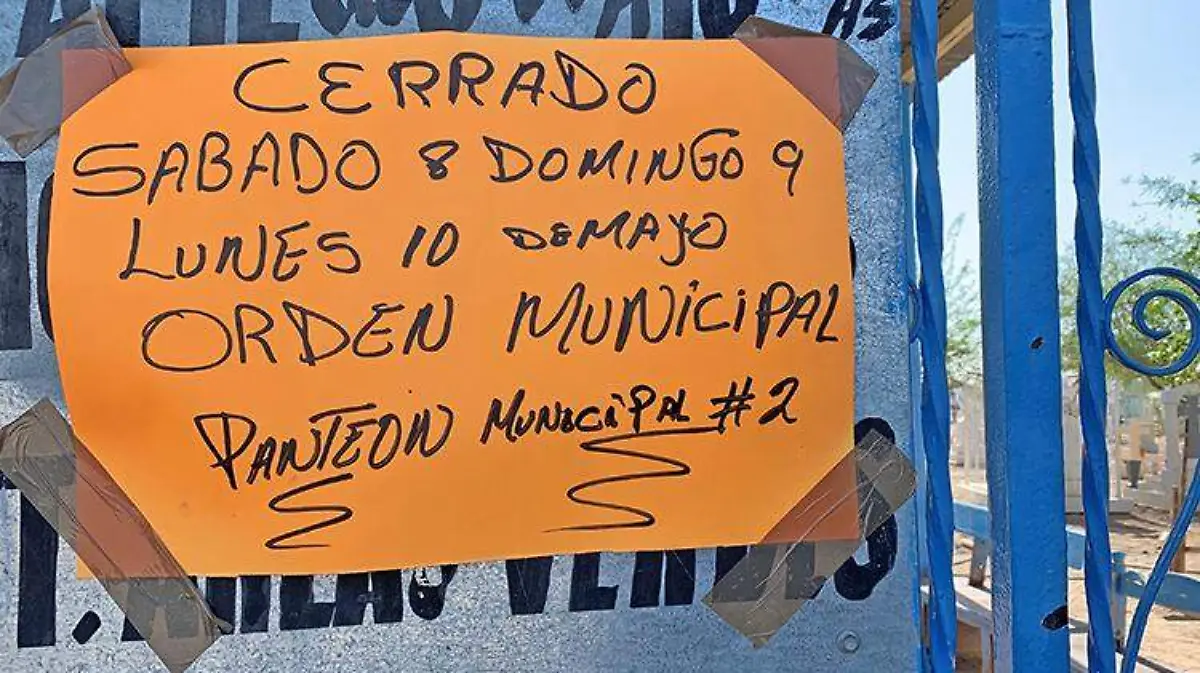 CERRADO
SABADO 8 DOMINGO 9
LUNES 10 DE MAYO
ORDEN MUNICIPAL
PANTEON MUNICIPAL #2